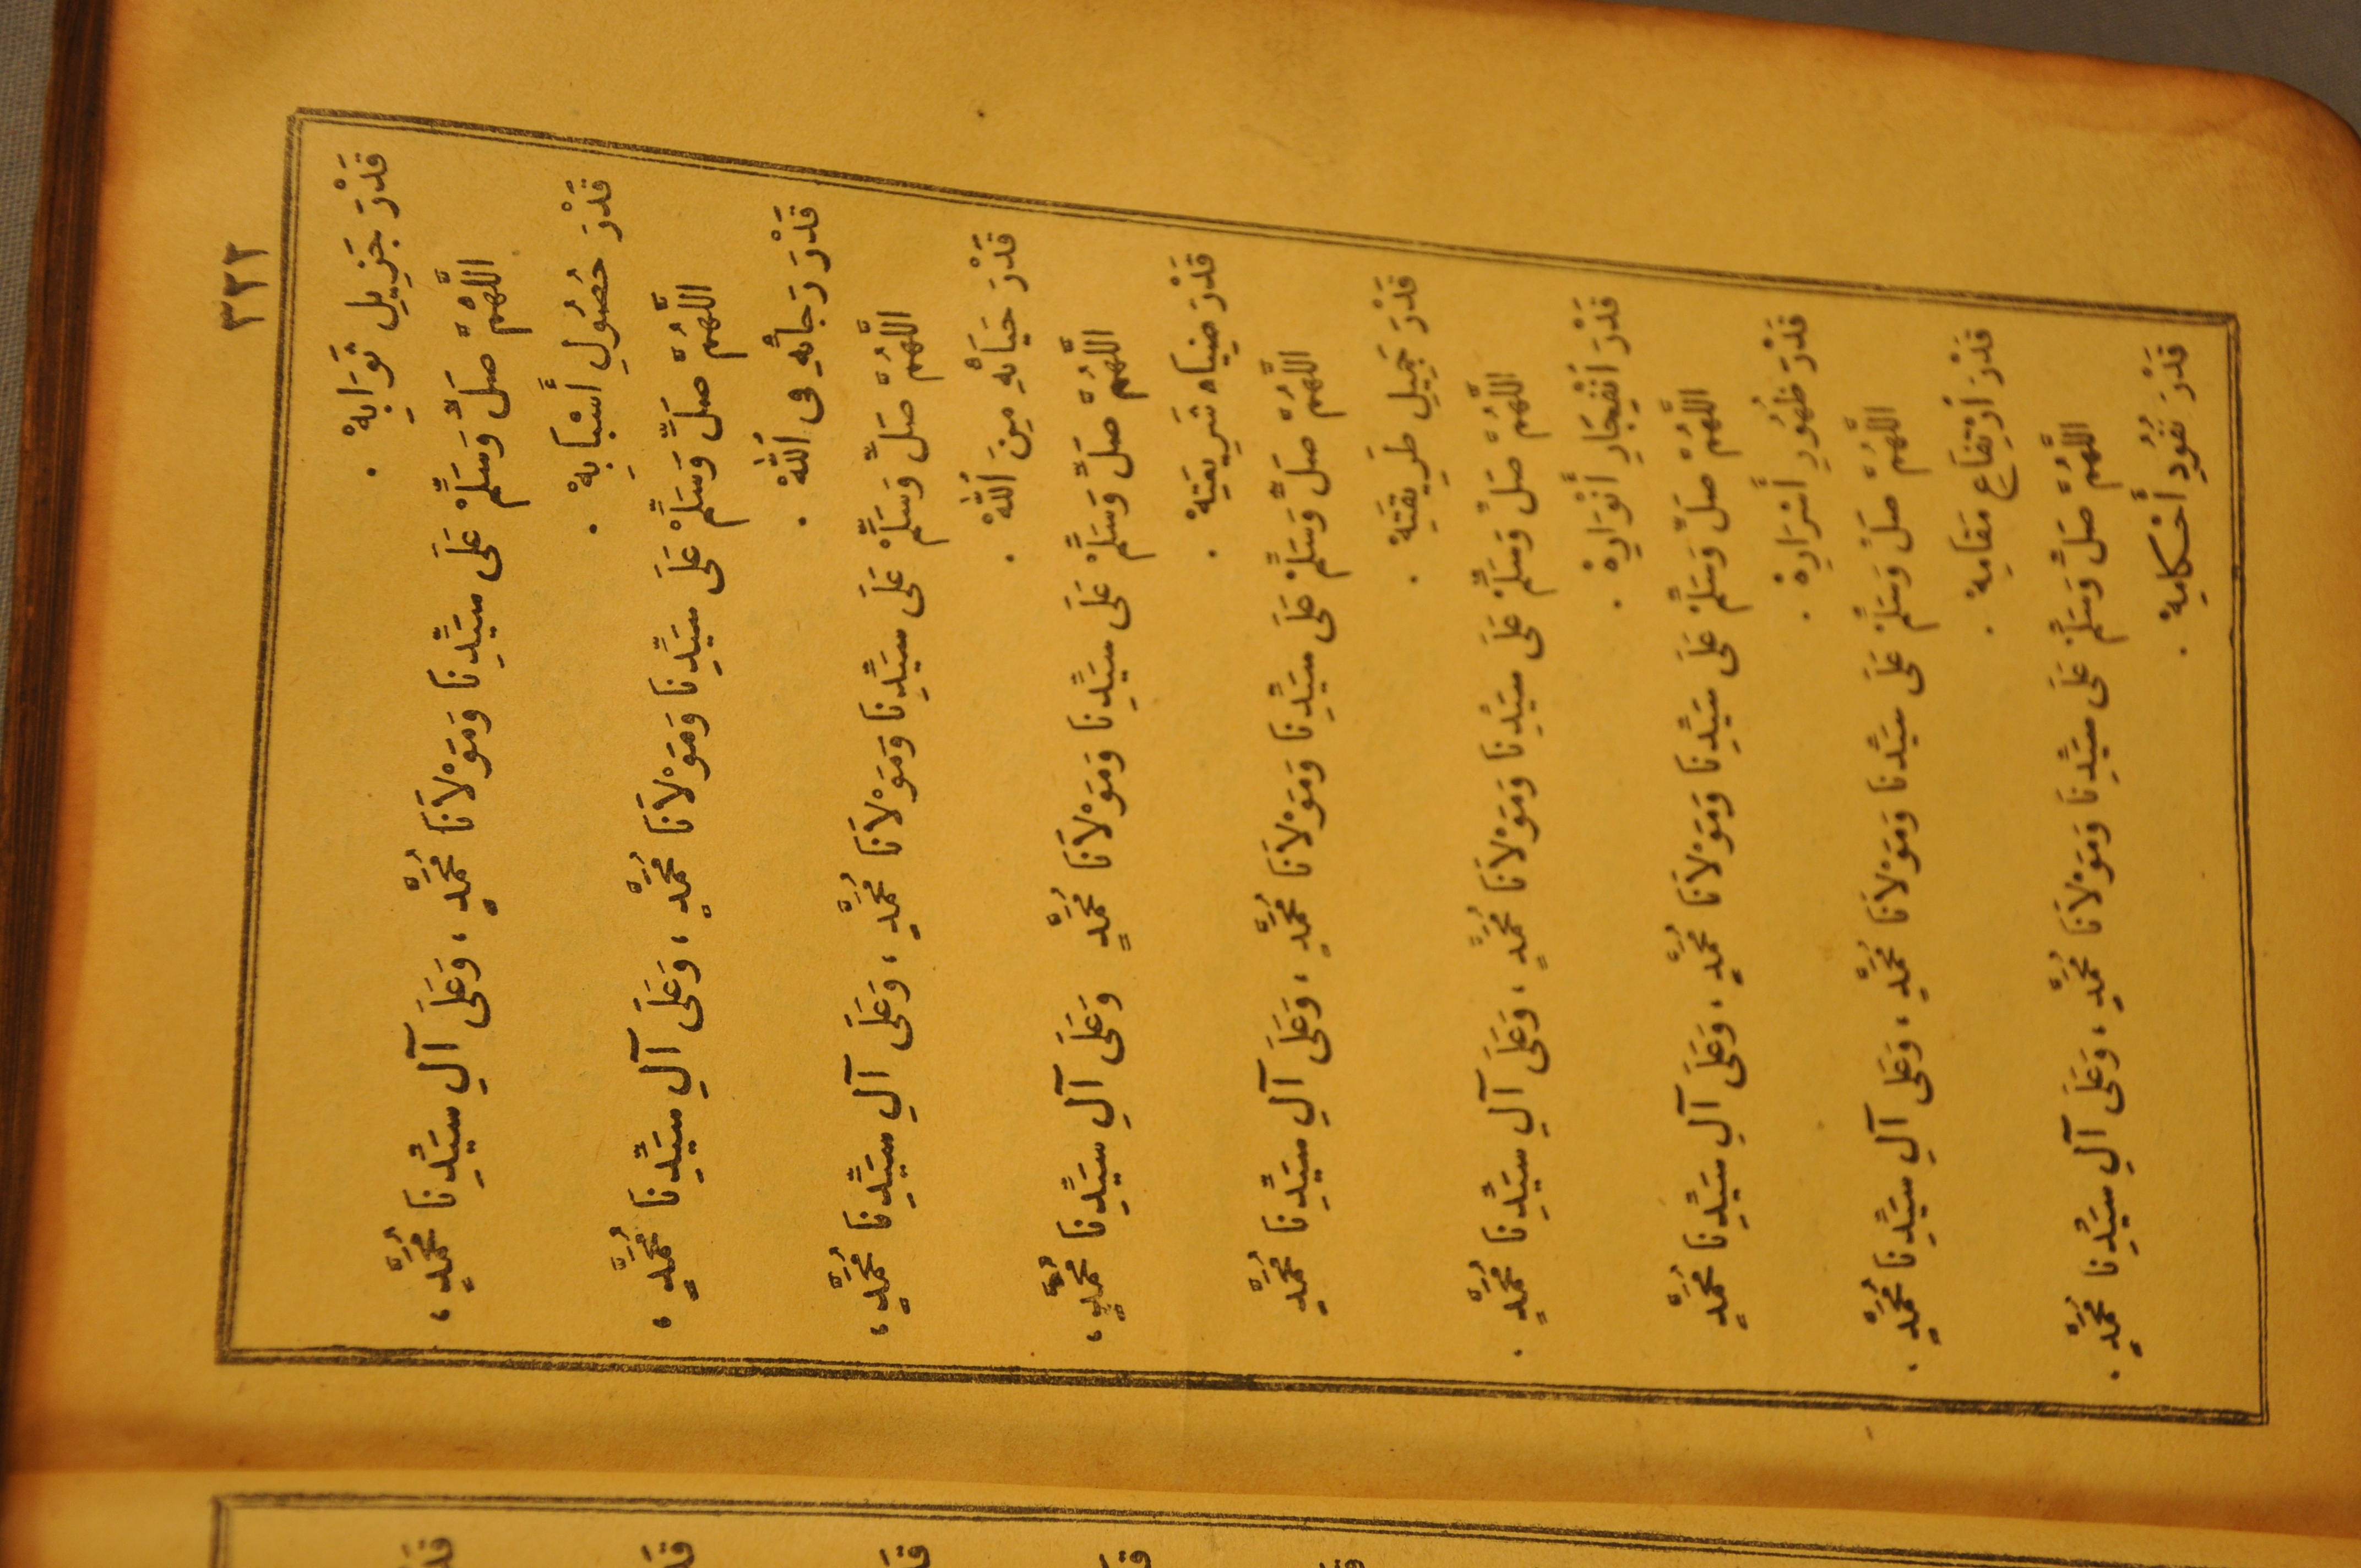 ٣٢٢
قَدْرَ جَزِيلِ ثَوَابِهْ .
اللَّهُمَّ صَلِّ وَسَلِّمْ عَلَى سَيِّدِنَا وَمَوْلاَنَا مُحَمَّدٍ ، وَعَلَى آلِ سَيِّدِنَا مُحَمَّدٍ ،
قَدْرَ حُصُولِ أَسْبَابِهْ .
اللَّهُمَّ صَلِّ وَسَلِّمْ عَلَى سَيِّدِنَا وَمَوْلاَنَا مُحَمَّدٍ ، وَعَلَى آلِ سَيِّدِنَا مُحَمَّدٍ ،
قَدْرَ رَجَائِهِ فى اُللّٰهْ .
اللَّهُمَّ صَلِّ وَسَلِّمْ عَلَى سَيِّدِنَا وَمَوْلاَنَا مُحَمَّدٍ ، وَعَلَى آلِ سَيِّدِنَا مُحَمَّدٍ ،
قَدْرَ حَيَائِهِ مِنَ اُللّٰهْ .
اللَّهُمَّ صَلِّ وَسَلِّمْ عَلَى سَيِّدِنَا وَمَوْلاَنَا مُحَمَّدٍ وَعَلَى آلِ سَيِّدِنَا مُحَمَّدٍ ،
قَدْرَ ضِيَاءِ شَرِيعَتِهْ .
اللَّهُمَّ صَلِّ وَسَلِّمْ عَلَى سَيِّدِنَا وَمَوْلاَنَا مُحَمَّدٍ ، وَعَلَى آلِ سَيِّدِنَا مُحَمَّدٍ
قَدْرَ جَمِيلِ طَرِيقَتِهْ .
اللَّهُمَّ صَلِّ وَسَلِّمْ عَلَى سَيِّدِنَا وَمَوْلاَنَا مُحَمَّدٍ ، وَعَلَى آلِ سَيِّدِنَا مُحَمَّدٍ .
قَدْرَ اَنْفِجَارِ أَنْوَارِهْ .
اللَّهُمَّ صَلِّ وَسَلِّمْ عَلَى سَيِّدِنَا وَمَوْلاَنَا مُحَمَّدٍ ، وَعَلَى آلِ سَيِّدِنَا مُحَمَّدٍ
قَدْرَ ظُهُورِ أَسْرَارِهْ .
اللَّهُمَّ صَلِّ وَسَلِّمْ عَلَى سَيِّدِنَا وَمَوْلاَنَا مُحَمَّدٍ ، وَعَلَى آلِ سَيِّدِنَا مُحَمَّدٍ .
قَدْرَ اَرْتِفَاعِ مَقَامِهْ .
اللَّهُمَّ صَلِّ وَسَلِّمْ عَلَى سَيِّدِنَا وَمَوْلاَنَا مُحَمَّدٍ ، وَعَلَى آلِ سَيِّدِنَا مُحَمَّدٍ .
قَدْرَ نُفُوذِ أَحْكَامِهْ .